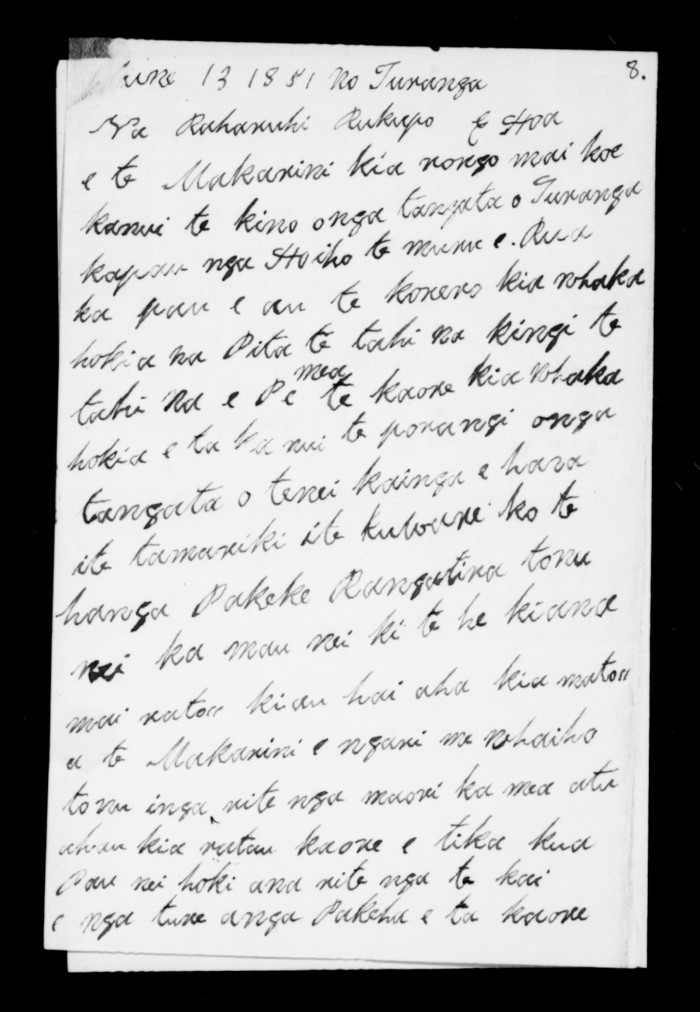 8.
June 13 1851 No Turanga
Na Raharuhi Rukupo E Hoa
e te Makarini kia rongo mai koe
kanui te kino onga tangata o Turanga
kapau nga Hoiho te muru e. Rua
ka pau e au te korero kia whaka
hokia na Pita te tahi na kingi te
tahi na e Pe mea te kaore kia whaka
hokia e ta Ka nui te porangi onga
tangata o tenei kainga e hara
ite tamariki ite kuware ko te
hanga Pakeke Rangatira tonu
nei ka mau nei ki te he kiana
mai ratou kiau hai aha kia matou
a te Makarini e ngari me whaiho
tonu inga rite nga maori ka mea atu
ahau kia ratau kaore e tika kua
Pau nei hoki ana rite nga te kai
e nga ture anga Pakeha e ta kaore